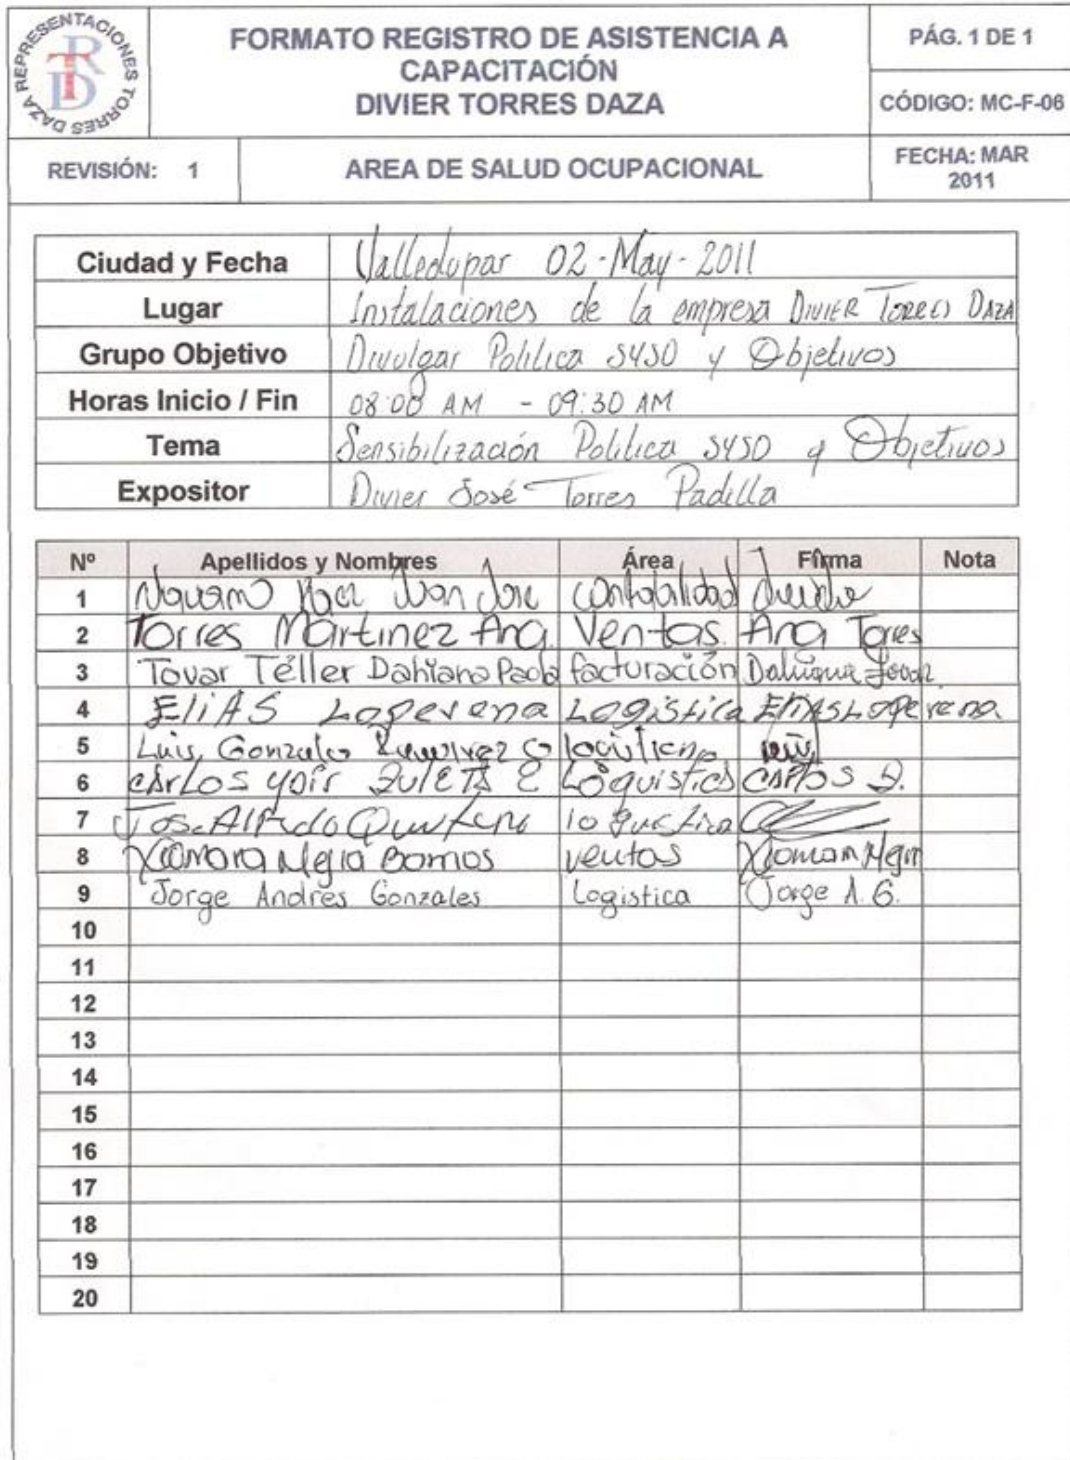 REPRESENTACIONES TORRES DAZA
TRD
FORMATO REGISTRO DE ASISTENCIA A
CAPACITACIÓN
DIVIER TORRES DAZA
PÁG. 1 DE 1
CÓDIGO: MC-F-06
REVISIÓN: 1
AREA DE SALUD OCUPACIONAL
FECHA: MAR
2011
Ciudad y Fecha Valledupar 02-May-2011
Lugar Instalaciones de la empresa DIVIER TORRES DAZA
Grupo Objetivo Divulgar Política SYSO y Objetivos
Horas Inicio / Fin 08:00 AM - 09:30 AM
Tema Sensibilización Política SYSO y Objetivos
Expositor Divier José Torres Padilla
Nº Apellidos y Nombres Área Firma Nota
1 Juan José contabilidad
2 Torres Martinez Ana. Ventas. Ana Torres
3 Tovar Téller Dahiana Paola facturación Dahiana Tovar
4 EliAS Loperena Logística EliAS Loperena
5 Luis Gonzalo
6 CARLOS YAIR ZULETA Loguistica CARLOS Z.
7 Jose Alfredo Quintero
8 Xiomara Mejia Barrios ventas Xiomara Mejia
9 Jorge Andres Gonzales Logistica Jorge A. G.
10
11
12
13
14
15
16
17
18
19
20